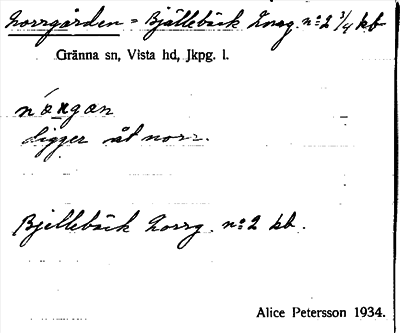 Norrgården = Bjällebäck Norrg. n:2 3/4 kb
Gränna sn, Vista hd, Jkpg. l.
ligger åt norr.
Bjellebäck Norrg. n:2 kb.
Alice Petersson 1934.